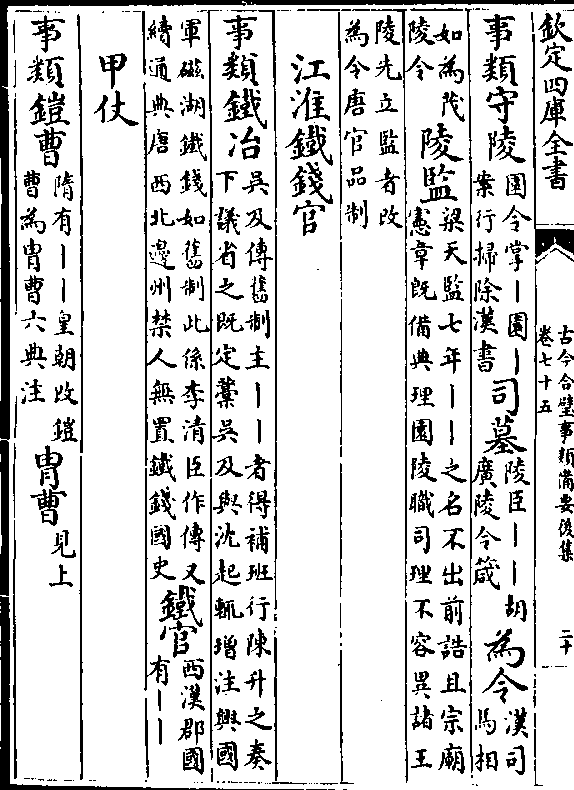 欽定四庫全書
古今合璧事類備要後集
卷七十五
二十
事類守陵園令掌丨園丨
案行掃除漢書司墓陵臣丨丨胡
廣陵令箴為令漢司
馬相
如為茂
陵令陵監梁天監七年丨丨之名不出前誥且宗廟
憲章既備典理園陵職司理不容異諸王
陵先立監者改
為令唐官品制
江淮鐵錢官
事類鐵冶吳及傳舊制主丨丨者得補班行陳升之奏
下議省之既定藁吳及與沈起輒增注興國
軍磁湖鐵錢如舊制此係李清臣作傳又
續通典唐西北邊州禁人無置鐵錢國史鐵官西漢郡國
有丨丨
甲仗
事類鎧曹隋有丨丨皇朝改鎧
曹為胄曹六典注胄曹見上